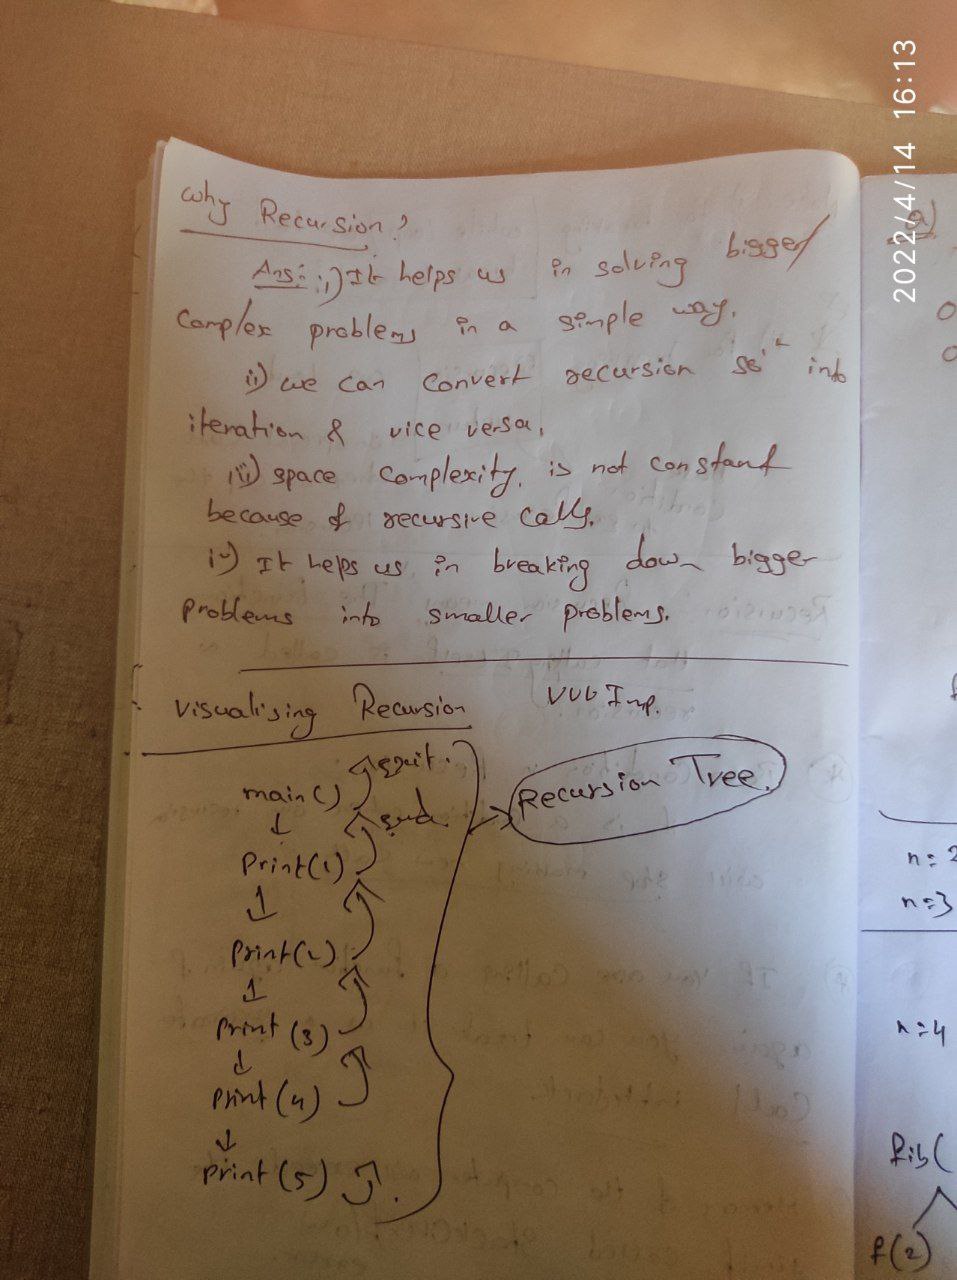 2022/4/14 16:13
Why Recursion?
Ans: i) It helps us in solving bigger/
Complex problems in a simple way.
ii) we can convert recursion into
iteration & vice versa.
iii) space complexity. is not constant
because of recursive calls.
iv) It helps us in breaking down bigger
problems into smaller problems.
Visualising Recursion VVV Imp.
exit.
main()
end.
Recursion Tree.
Print(1)
Print(2)
Print(3)
Print(4)
Print(5)
a)
n=2
n=3
n=4
fib(
f(2)